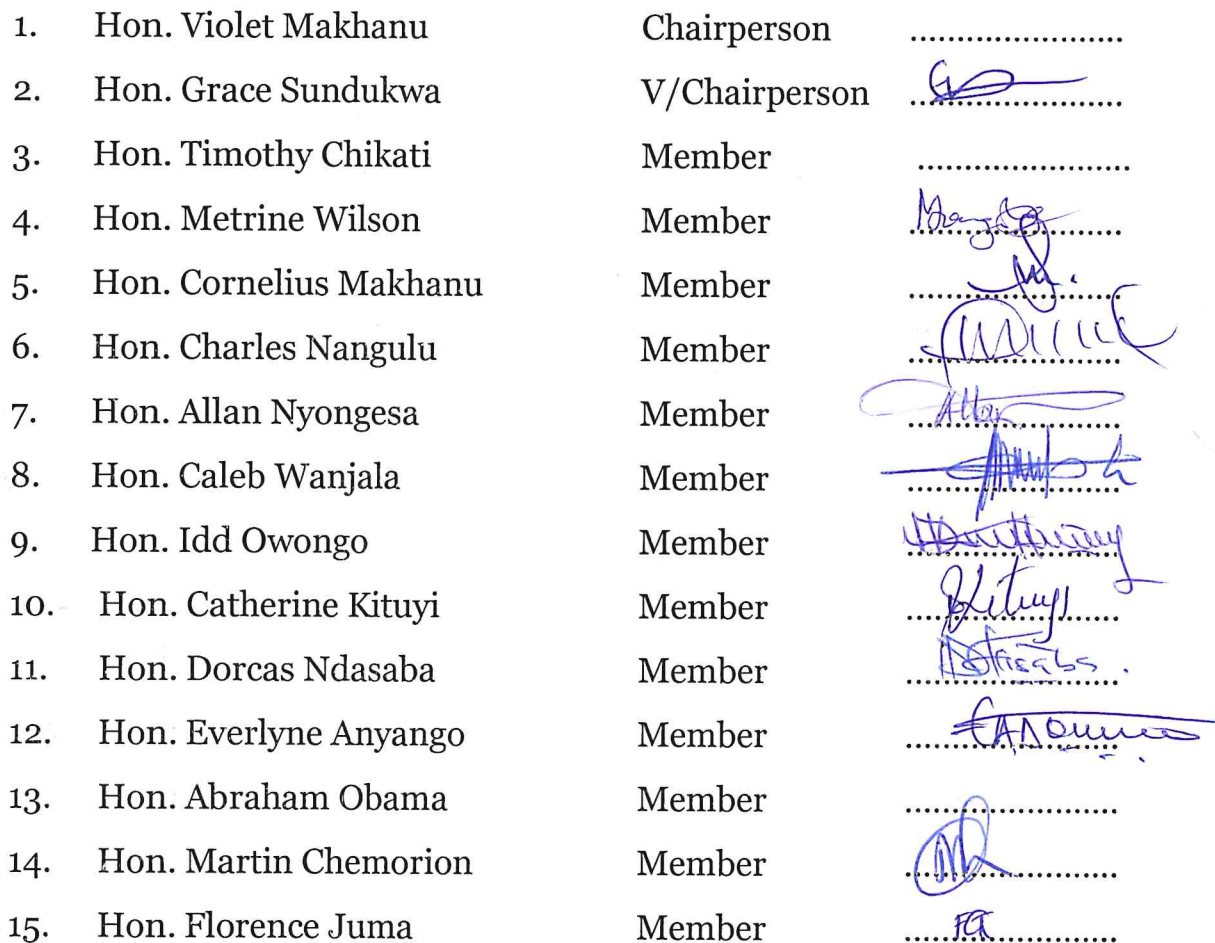 1. Hon. Violet Makhanu Chairperson ........................
2. Hon. Grace Sundukwa V/Chairperson ........................
3. Hon. Timothy Chikati Member ........................
4. Hon. Metrine Wilson Member ........................
5. Hon. Cornelius Makhanu Member ........................
6. Hon. Charles Nangulu Member ........................
7. Hon. Allan Nyongesa Member ........................
8. Hon. Caleb Wanjala Member ........................
9. Hon. Idd Owongo Member ........................
10. Hon. Catherine Kituyi Member ........................
11. Hon. Dorcas Ndasaba Member ........................
12. Hon. Everlyne Anyango Member ........................
13. Hon. Abraham Obama Member ........................
14. Hon. Martin Chemorion Member ........................
15. Hon. Florence Juma Member ........................